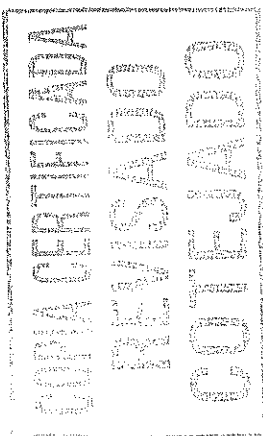 COPIA CERTIFICADA
REVISADO
COTEJADO